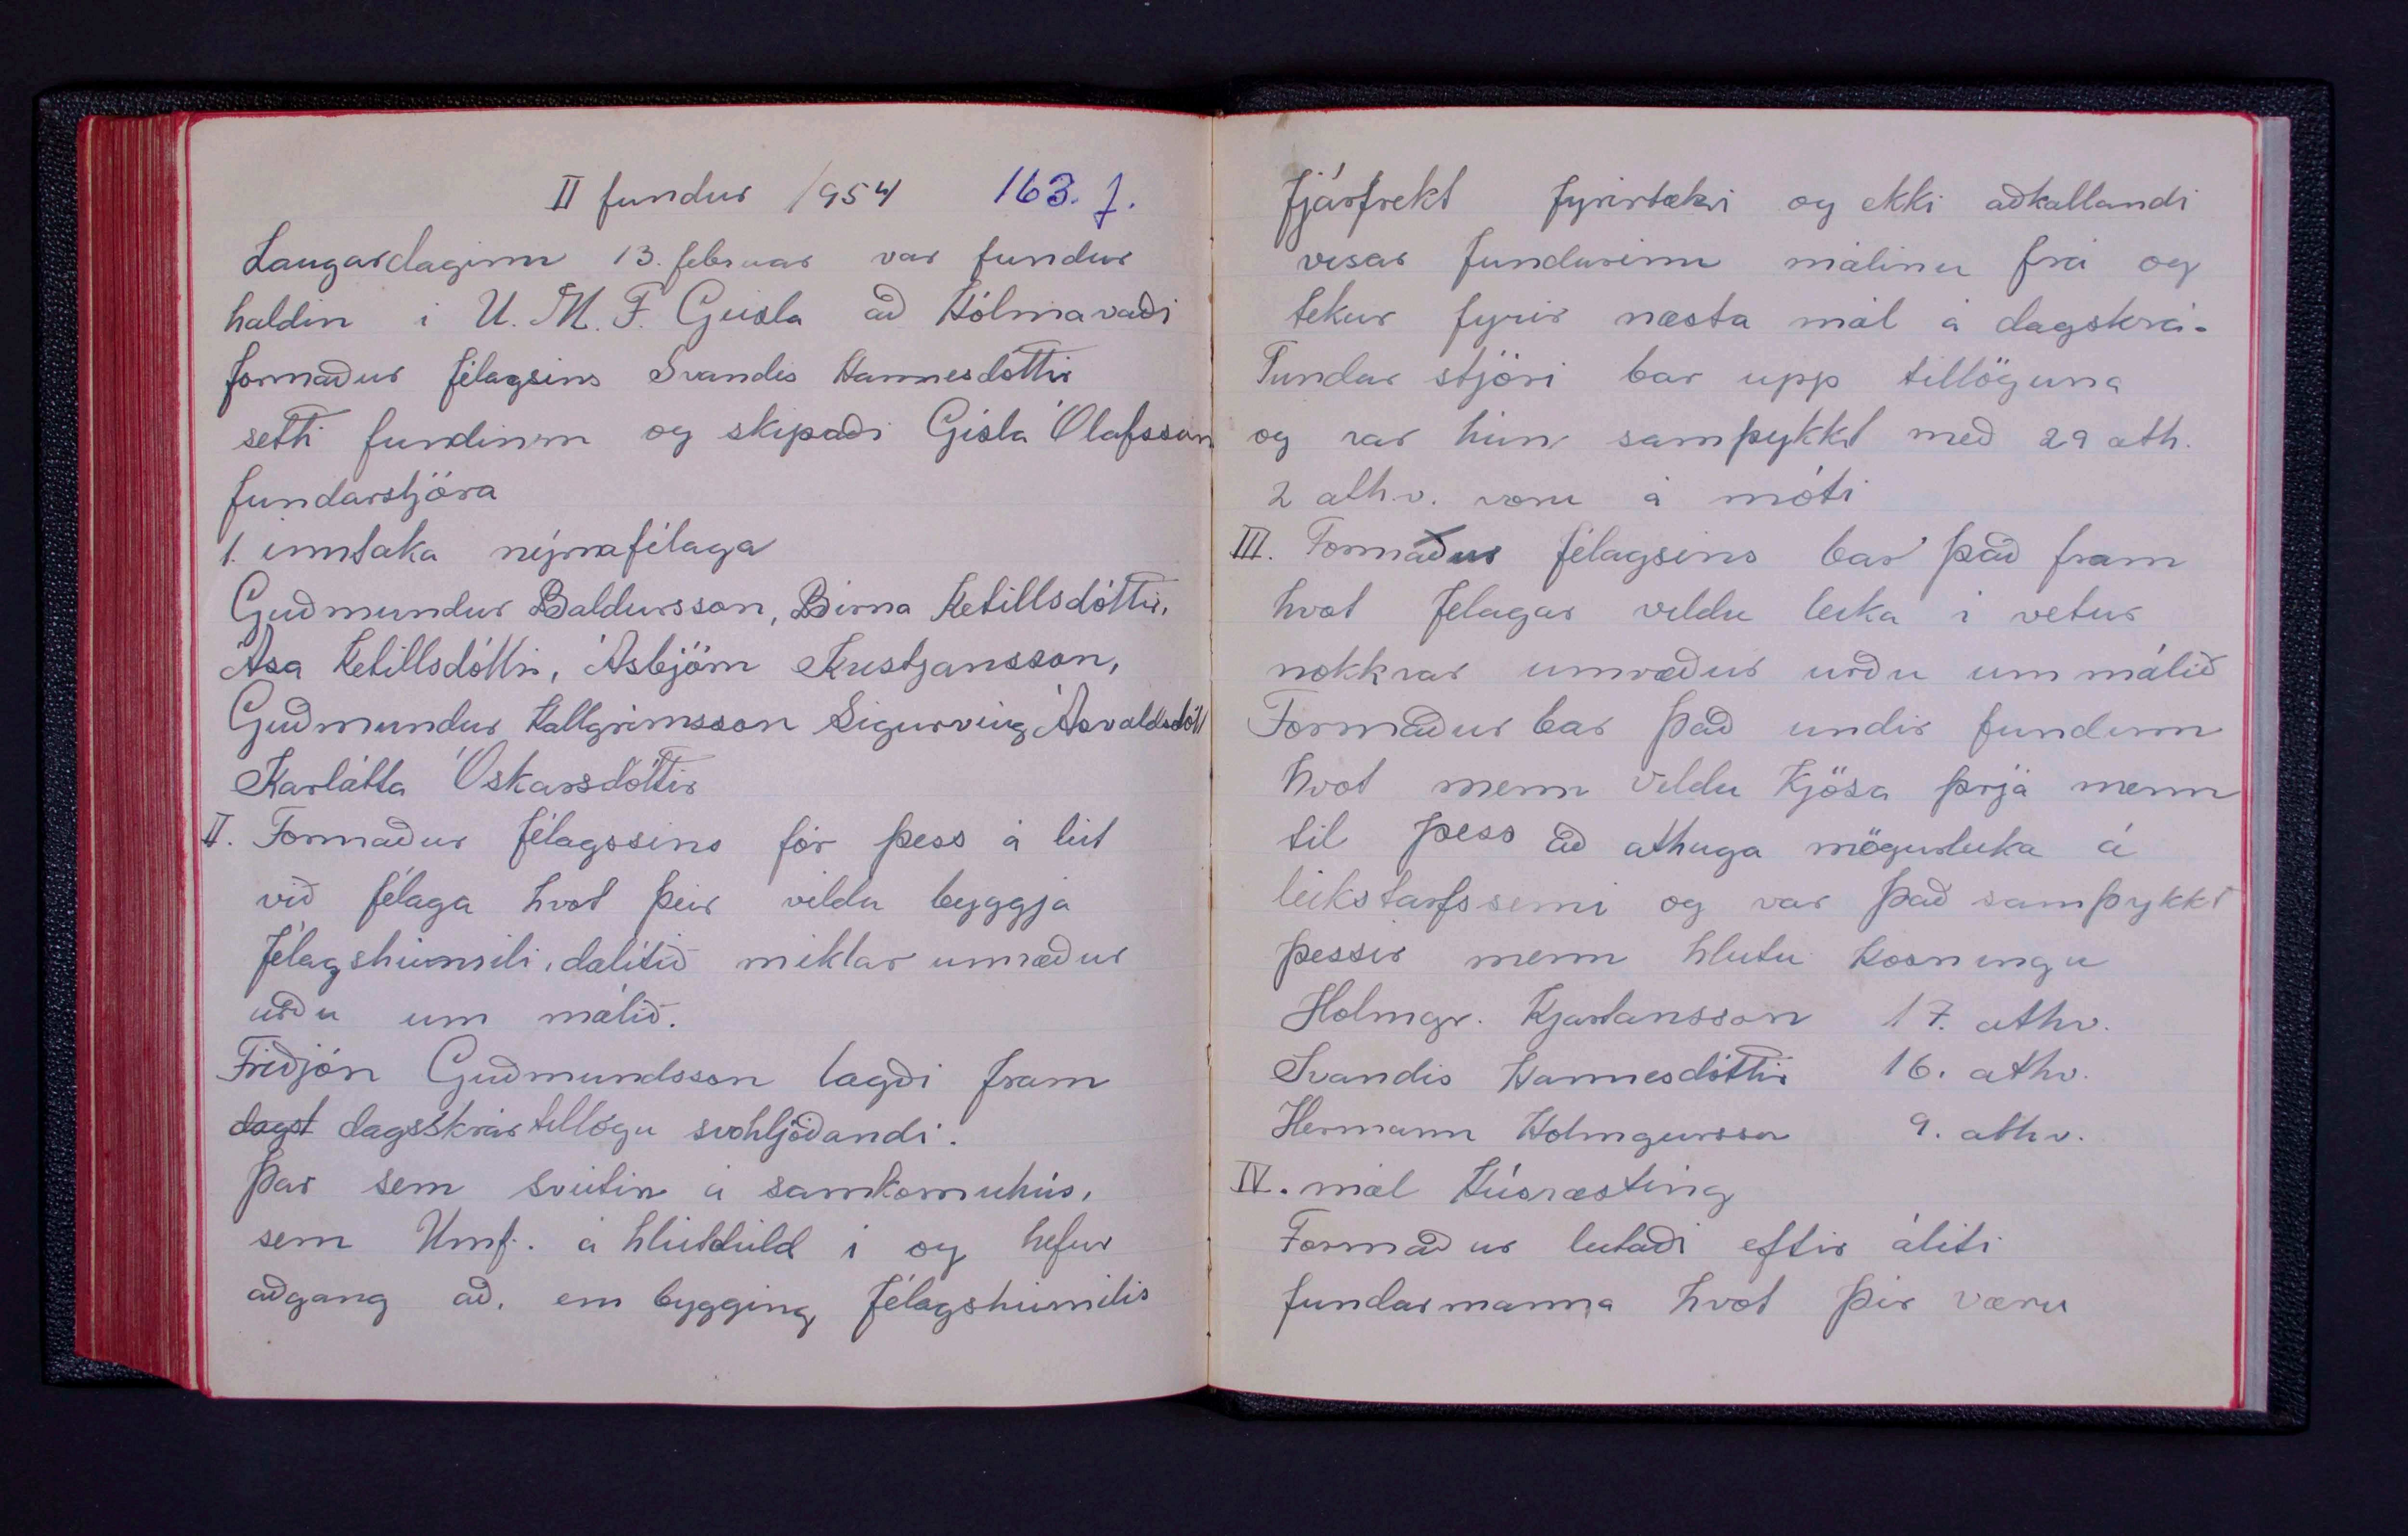 II fundur 1954 163. f.
Laugardaginn 13. februar var fundur
haldin i U. M. F. Geisla að Hólmavaði
formaður félagsins Svandis Hannesdóttir
setti fundinn og skipaði Gísla Ólafsson
fundarstjóra
1. inntaka nýrrafélaga
Guðmundur Baldursson, Birna Ketillsdóttir,
Ása Ketillsdóttir, Ásbjörn Kristjansson,
Guðmundur Hallgrimsson Sigurveig Ásvaldsdótt
Karlátta Óskarsdóttir
II. Formaður félagssins fór þess á leit
við félaga hvot þeir vildu byggja
félagsheimili, dálítið miklar umræður
urðu um málið.
Friðjón Guðmundsson lagði fram
dagst dagsskrártillögu svohljóðandi.
Þar sem sveitin á samkomuhús,
sem Umf. á hlutdeild i og hefur
aðgang að, en bygging félagsheimilis
fjárfrekt fyrirtæki og ekki aðkallandi
visar fundurinn málinu frá og
tekur fyrir næsta mál á dagskrá.
Fundar stjóri bar upp tillöguna
og var hún samþykkt með 29 ath.
2 athv. voru á móti
III. Formaður félagsins bar það fram
hvot félagar vildu leika i vetur
nokkrar umræður urðu um málið
Formaður bar það undir fundinn
hvot menn vildu kjósa þrjá menn
til þess að athuga möguleika á
leikstarfssemi og var það samþykkt
þessir menn hlutu kosningu
Holmgr. Kjartansson 17. athv.
Svandis Hannesdóttir 16. athv.
Hermann Holmgeirsson 9. athv.
IV. mál Húsræsting
Formaður leitaði eftir áliti
fundarmanna hvot þeir væru